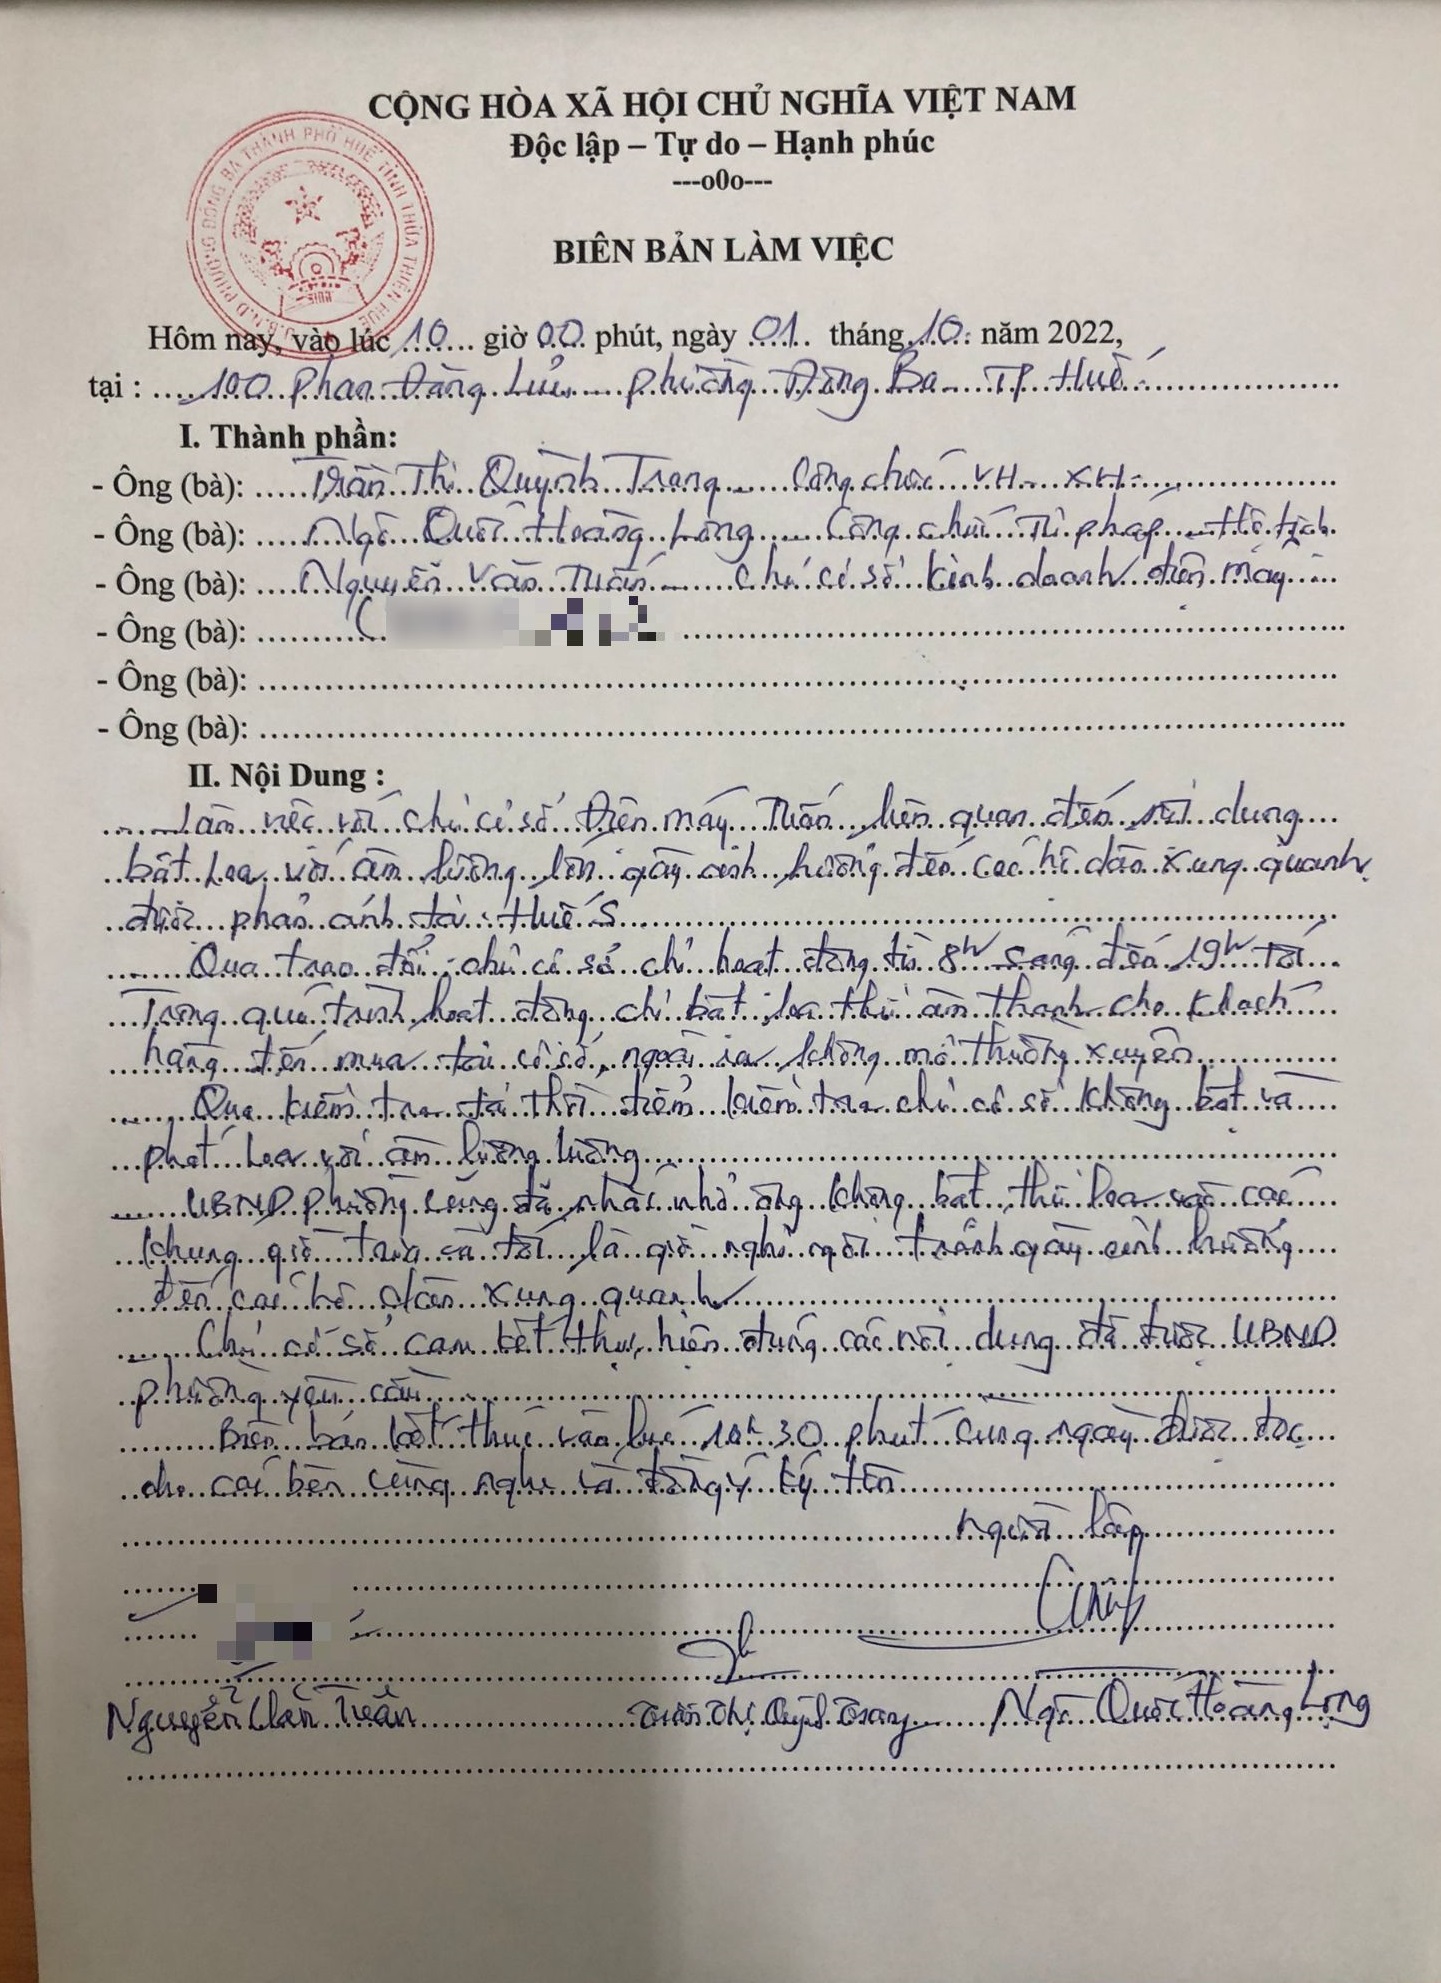 CỘNG HÒA XÃ HỘI CHỦ NGHĨA VIỆT NAM
Độc lập – Tự do – Hạnh phúc
---o0o---
U.B.N.D PHƯỜNG ĐÔNG BA THÀNH PHỐ HUẾ TỈNH THỪA THIÊN HUẾ
BIÊN BẢN LÀM VIỆC
Hôm nay, vào lúc 10 giờ 00 phút, ngày 01 tháng 10 năm 2022,
tại : 100 Phan Đăng Lưu phường Đông Ba TP Huế
I. Thành phần:
- Ông (bà): Trần Thị Quỳnh Trang Công chức VH - XH
- Ông (bà): Ngô Quốc Hoàng Long Công chức Tư pháp hộ tịch
- Ông (bà): Nguyễn Văn Tuấn Chủ cơ sở kinh doanh điện máy
- Ông (bà):
- Ông (bà):
- Ông (bà):
II. Nội Dung :
Làm việc với chủ cơ sở Điện máy Tuấn liên quan đến nội dung
bật loa với âm lượng lớn gây ảnh hưởng đến các hộ dân xung quanh
được phản ánh tại Huế S
Qua trao đổi, chủ cơ sở chỉ hoạt động từ 8h sáng đến 19h tối
Trong quá trình hoạt động chỉ bật loa thử âm thanh cho khách
hàng đến mua tại cơ sở, ngoài ra không mở thường xuyên
Qua kiểm tra tại thời điểm kiểm tra chủ cơ sở không bật và
phát loa với âm lượng
UBND phường cũng đã nhắc nhở ông không bật, thử loa vào các
khung giờ trưa và tối là giờ nghỉ ngơi tránh gây ảnh hưởng
đến các hộ dân xung quanh
Chủ cơ sở cam kết thực hiện đúng các nội dung đã được UBND
phường yêu cầu
Biên bản kết thúc vào lúc 10h 30 phút cùng ngày được đọc
cho các bên cùng nghe và đồng ý ký tên
Người lập
Nguyễn Văn Tuấn Trần Thị Quỳnh Trang Ngô Quốc Hoàng Long